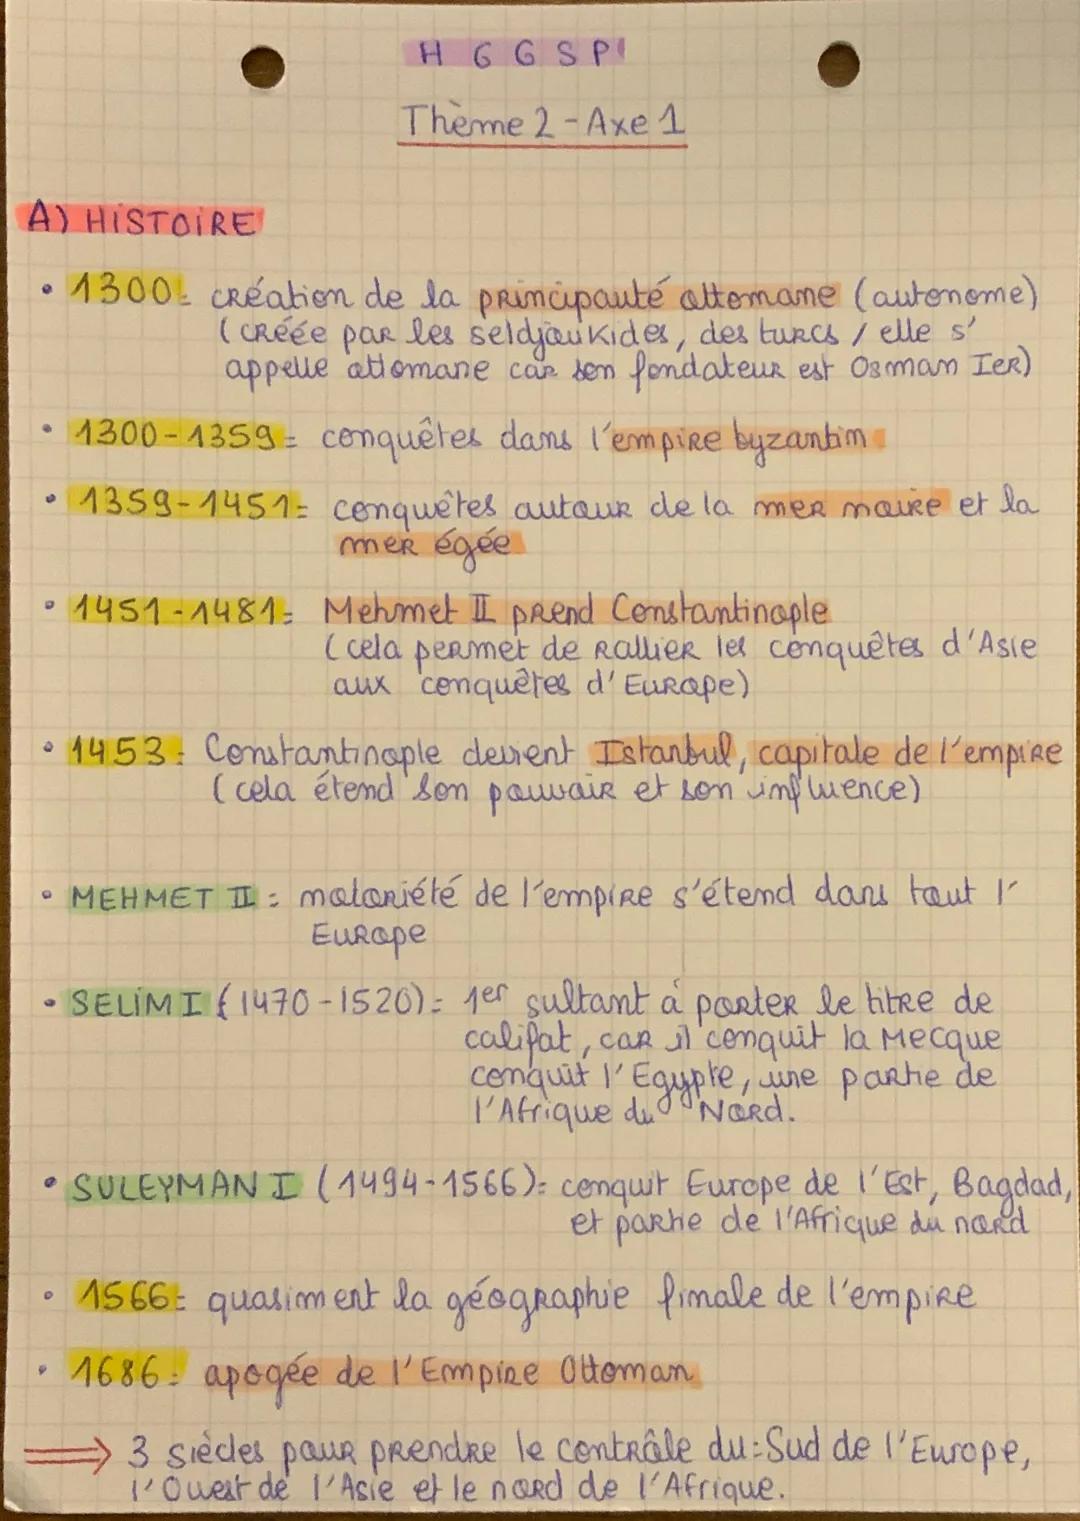 H G G S P
Thème 2 - Axe 1
A) HISTOIRE
• 1300: création de la principauté ottomane (autonome)
(créée par les seldjoukides, des turcs / elle s'
appelle ottomane car son fondateur est Osman Ier)
• 1300-1359: conquêtes dans l'empire byzantin
• 1359-1451: conquêtes autour de la mer noire et la
mer égée
• 1451-1481: Mehmet II prend Constantinople
(cela permet de rallier les conquêtes d'Asie
aux conquêtes d'Europe)
• 1453: Constantinople devient Istanbul, capitale de l'empire
(cela étend son pouvoir et son influence)
• MEHMET II: notoriété de l'empire s'étend dans tout l'
Europe
• SELIM I (1470-1520): 1er sultant à porter le titre de
califat, car il conquit la Mecque
conquit l'Egypte, une partie de
l'Afrique du Nord.
• SULEYMAN I (1494-1566): conquit Europe de l'Est, Bagdad,
et partie de l'Afrique du nord
• 1566: quasiment la géographie finale de l'empire
• 1686: apogée de l'Empire Ottoman
⟹ 3 siècles pour prendre le contrôle du: Sud de l'Europe,
l'Ouest de l'Asie et le nord de l'Afrique.